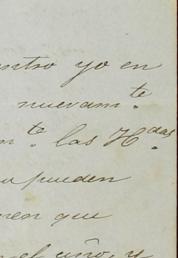 ntro yo en
nuevam.te
te. las H.das
pueden
nen que
el año, y